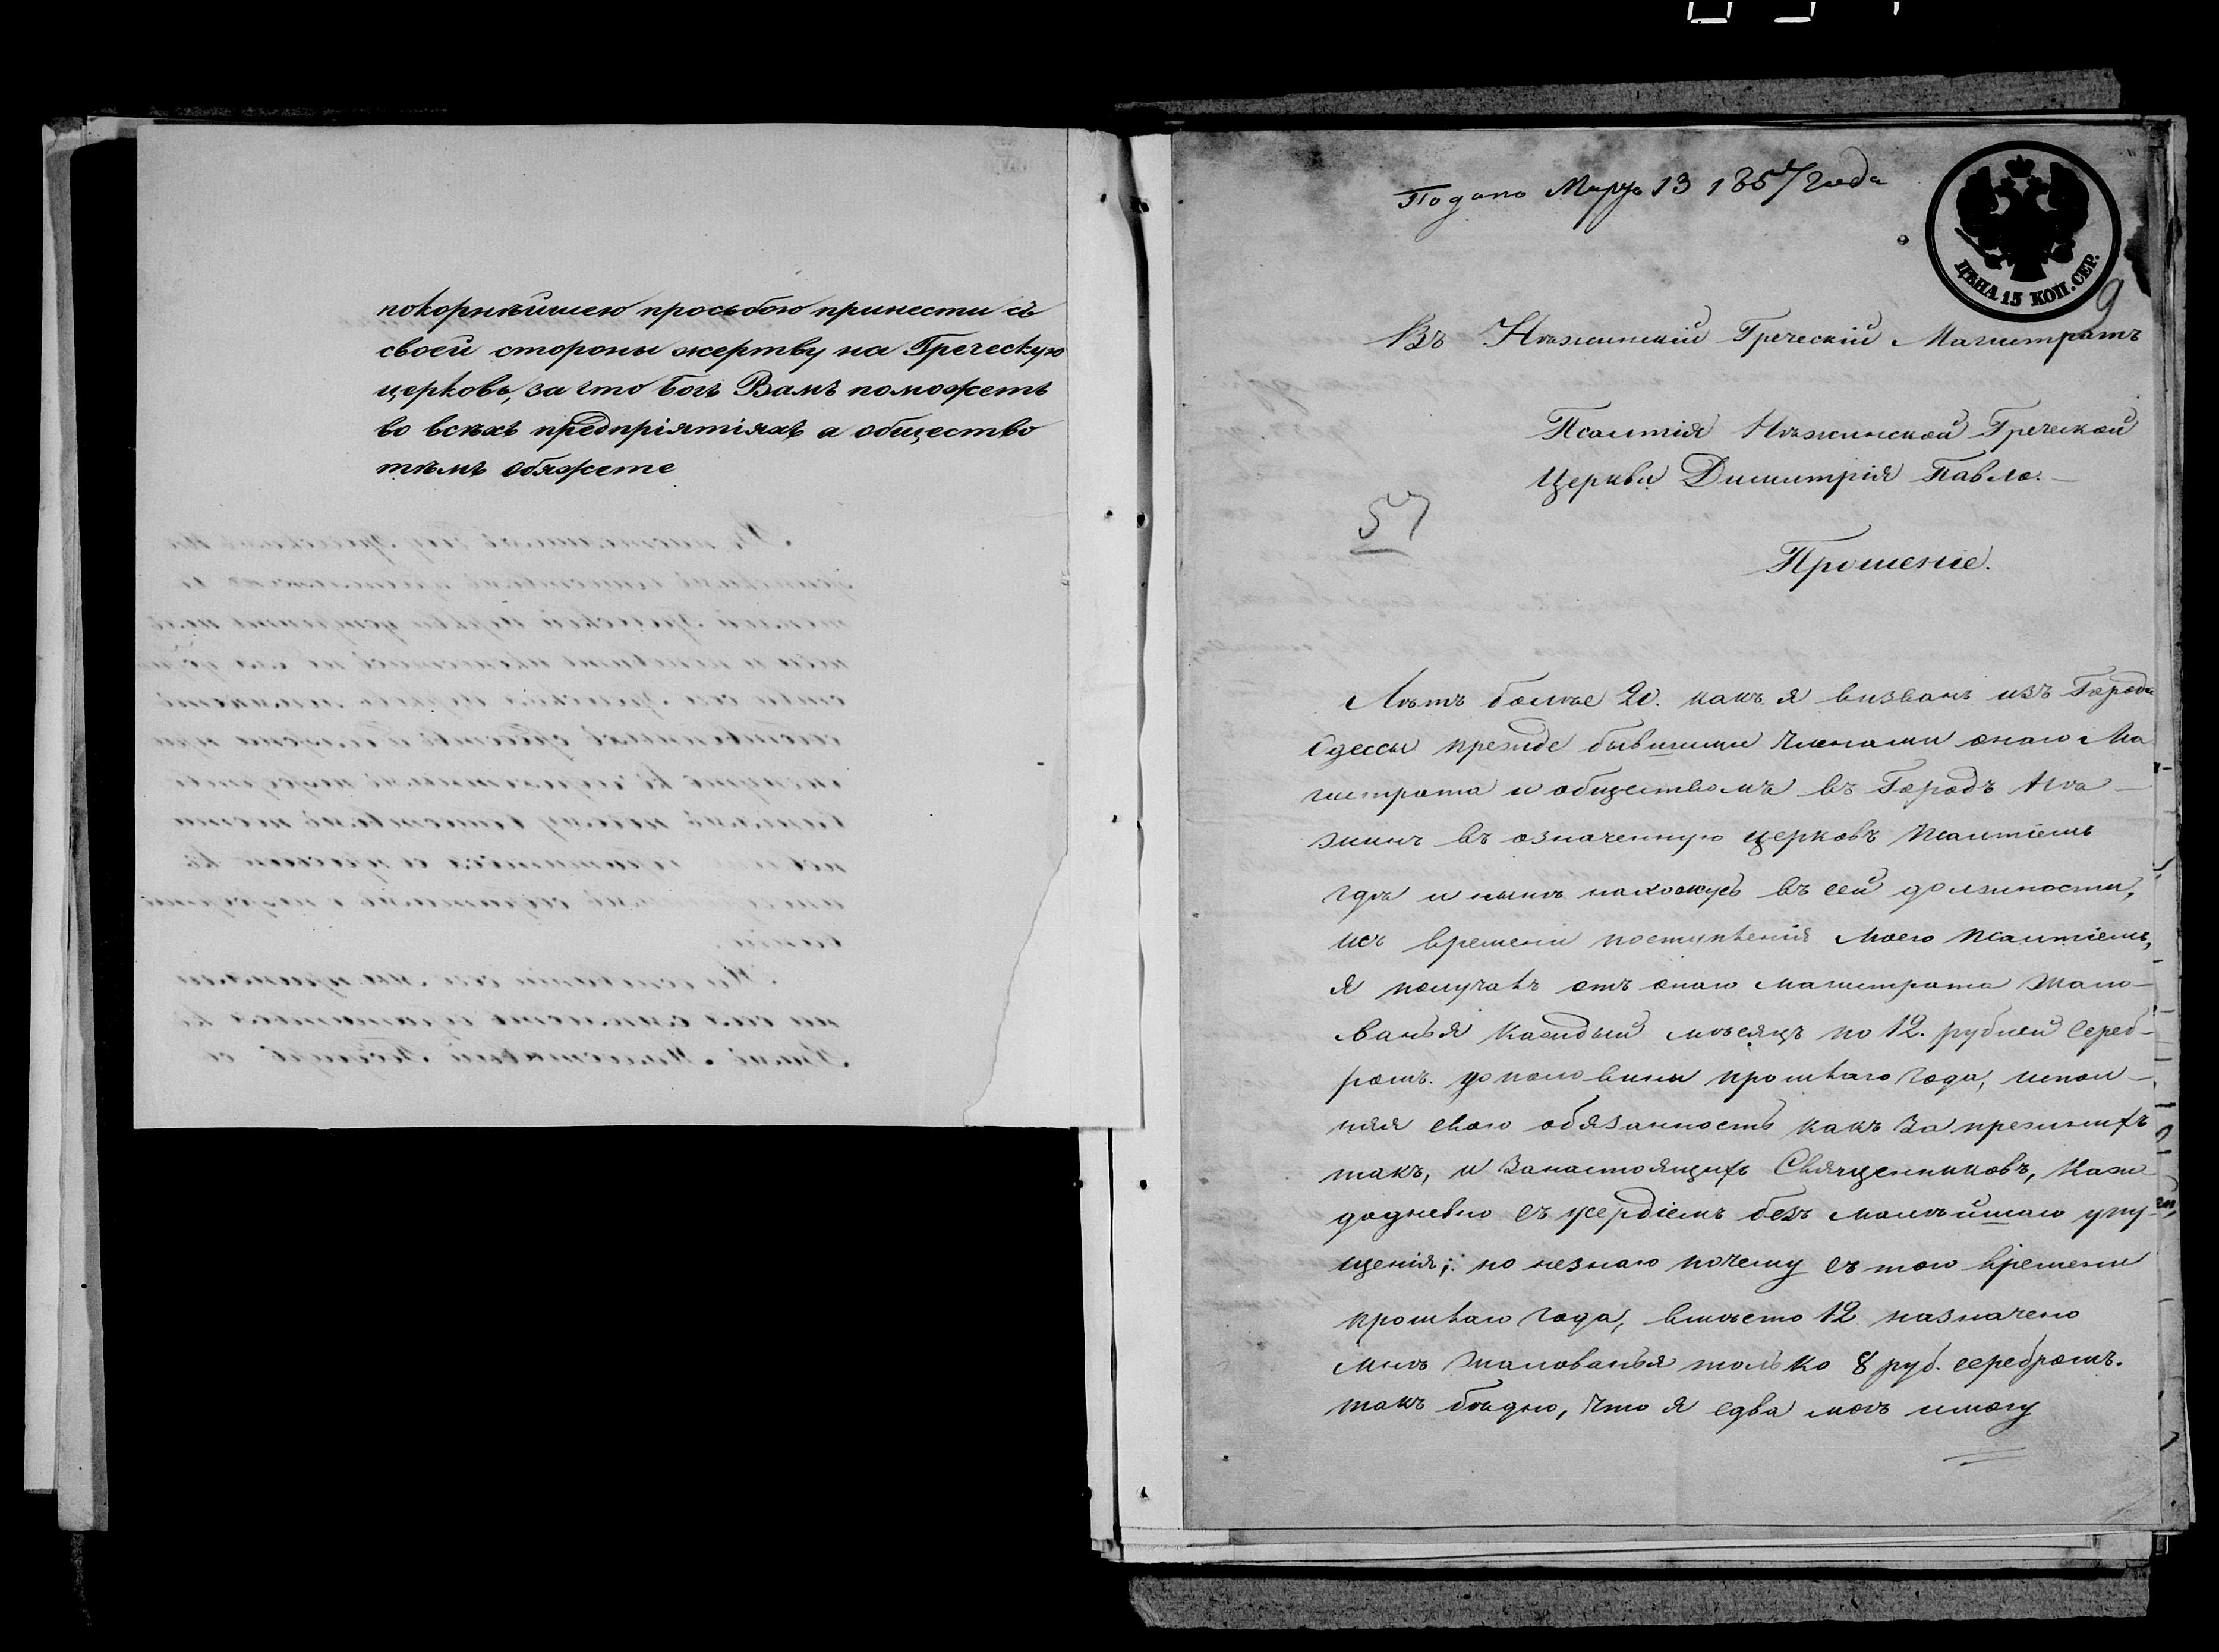 покорнѣйшею просьбою принести съ
своей стороны жертву на Греческую
церковь, за что Богъ Вамъ поможетъ
во всѣхъ предпріятіяхъ а общество
тѣмъ обяжете
Подано Марта 13 1857 года
ЦѢНА 15 КОП. СЕР.
9
Въ Нѣжинскій Греческій Магистратъ
Псалтія Нѣжинской Греческой
Церкви Димитрія Павло.
57
Прошеніе.
Лѣтъ болѣе 20. какъ я визванъ изъ Города
Одессы прежде бывшими членами онаго Ма
гистрата и обществомъ въ Городъ Нѣ-
жинъ въ означенную церковъ Псалтіемъ
гдѣ и нынѣ нахожусъ въ сей должности,
исъ времени поступленія моего псалтіемъ,
я получавъ отъ онаго магистрата жало-
ванья каждый мѣсяцъ по 12. рублей сереб-
ромъ. до половины прошлаго года, испол-
няя свою обязанность какъ за прежнихъ
такъ, и занастоящихъ Священниковъ, каж
додневно съ усердіемъ безъ малѣйшаго упу-
щенія; но незнаю почему съ того времени
прошлаго года, вмѣсто 12 назначено
мнѣ жалованья только 8 руб. серебромъ.
такъ бѣдно, что я едва могъ имогу